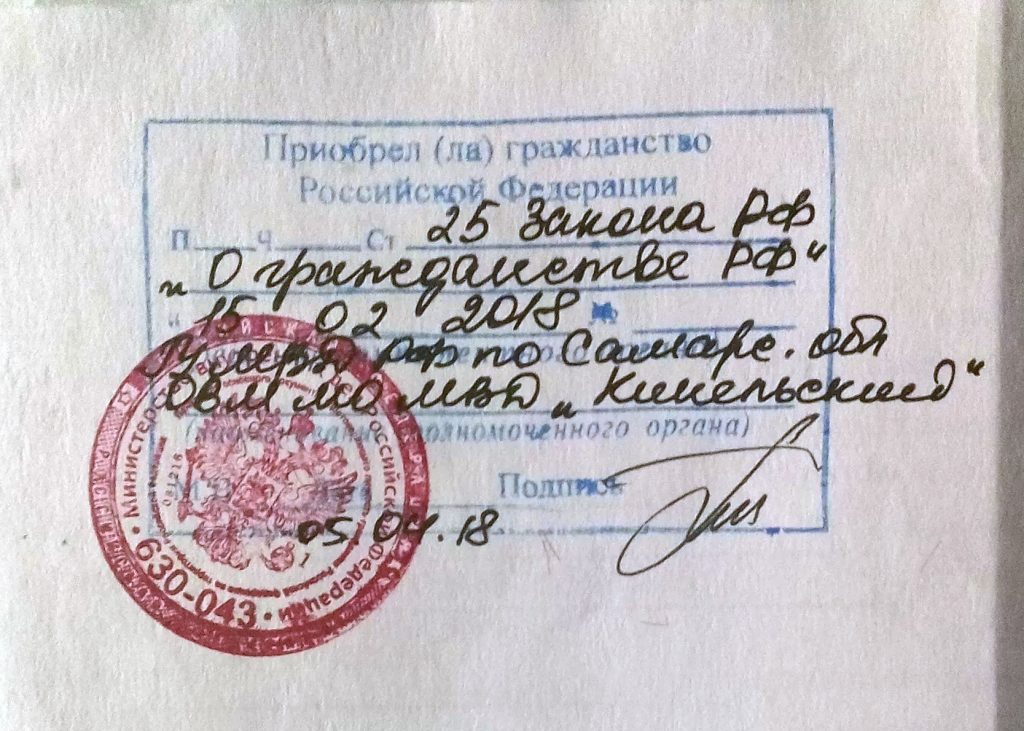 Приобрел (ла) гражданство
Российской Федерации
П. Ч Ст 25 Закона РФ
„О гражданстве РФ“
“ 15 02 2018 №
ГУ МВД РФ по Самарс. обл
ОВМ МО МВД „Кинельский“
полномоченного органа)
М.П. Подпись
05.04.18
Министерство
Российской Федерации
630-043